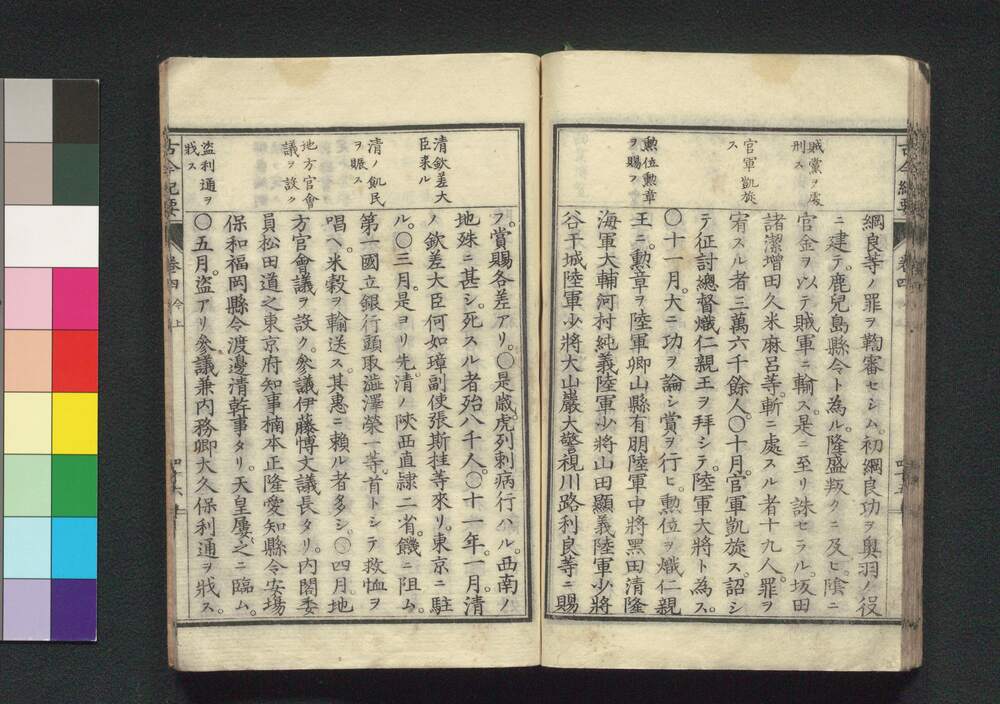 古今紀要
巻四
今上
賊黨ヲ處
刑ス
官軍凱旋
ス
勲位勲章
ヲ賜フ
綱良等ノ罪ヲ鞫審セシム。初綱良功ヲ奥羽ノ役
ニ建テ。鹿兒島縣令ト為ル。隆盛叛クニ及ヒ。陰ニ
官金ヲ以テ賊軍ニ輸ス。是ニ至リ誅セラル。坂田
諸潔増田久米麻呂等。斬ニ處スル者十九人。罪ヲ
宥スル者三萬六千餘人。〇十月。官軍凱旋ス。詔シ
テ征討總督熾仁親王ヲ拜シテ。陸軍大將ト為ス。
〇十一月。大ニ功ヲ論シ賞ヲ行ヒ。勲位ヲ熾仁親
王ニ。勲章ヲ陸軍卿山縣有朋陸軍中將黑田清隆
海軍大輔河村純義陸軍少將山田顯義陸軍少將
谷干城陸軍少將大山巌大警視川路利良等ニ賜
清欽差大
臣来ル
清ノ飢民
ヲ賑ス
地方官會
議ヲ設ク
盗利通ヲ
戕ス
フ。賞賜各差アリ。〇是歳。虎列刺病行ハル。西南ノ
地殊ニ甚シ。死スル者殆八千人。〇十一年。一月。清
ノ欽差大臣何如璋副使張斯桂等來リ。東京ニ駐
ル。〇三月。是ヨリ先。清ノ陝西直隷二省。饑ニ阻ム
第一國立銀行頭取澁澤榮一等。首トシテ救恤ヲ
唱ヘ。米穀ヲ輸送ス。其惠ニ賴ル者多シ。〇四月。地
方官會議ヲ設ク。參議伊藤博文議長タリ。内閣委
員松田道之東京府知事楠本正隆愛知縣令安場
保和福岡縣令渡邊清幹事タリ。天皇屢之ニ臨ム。
〇五月。盗アリ參議兼内務卿大久保利通ヲ戕ス。
古今紀要
巻四
今上